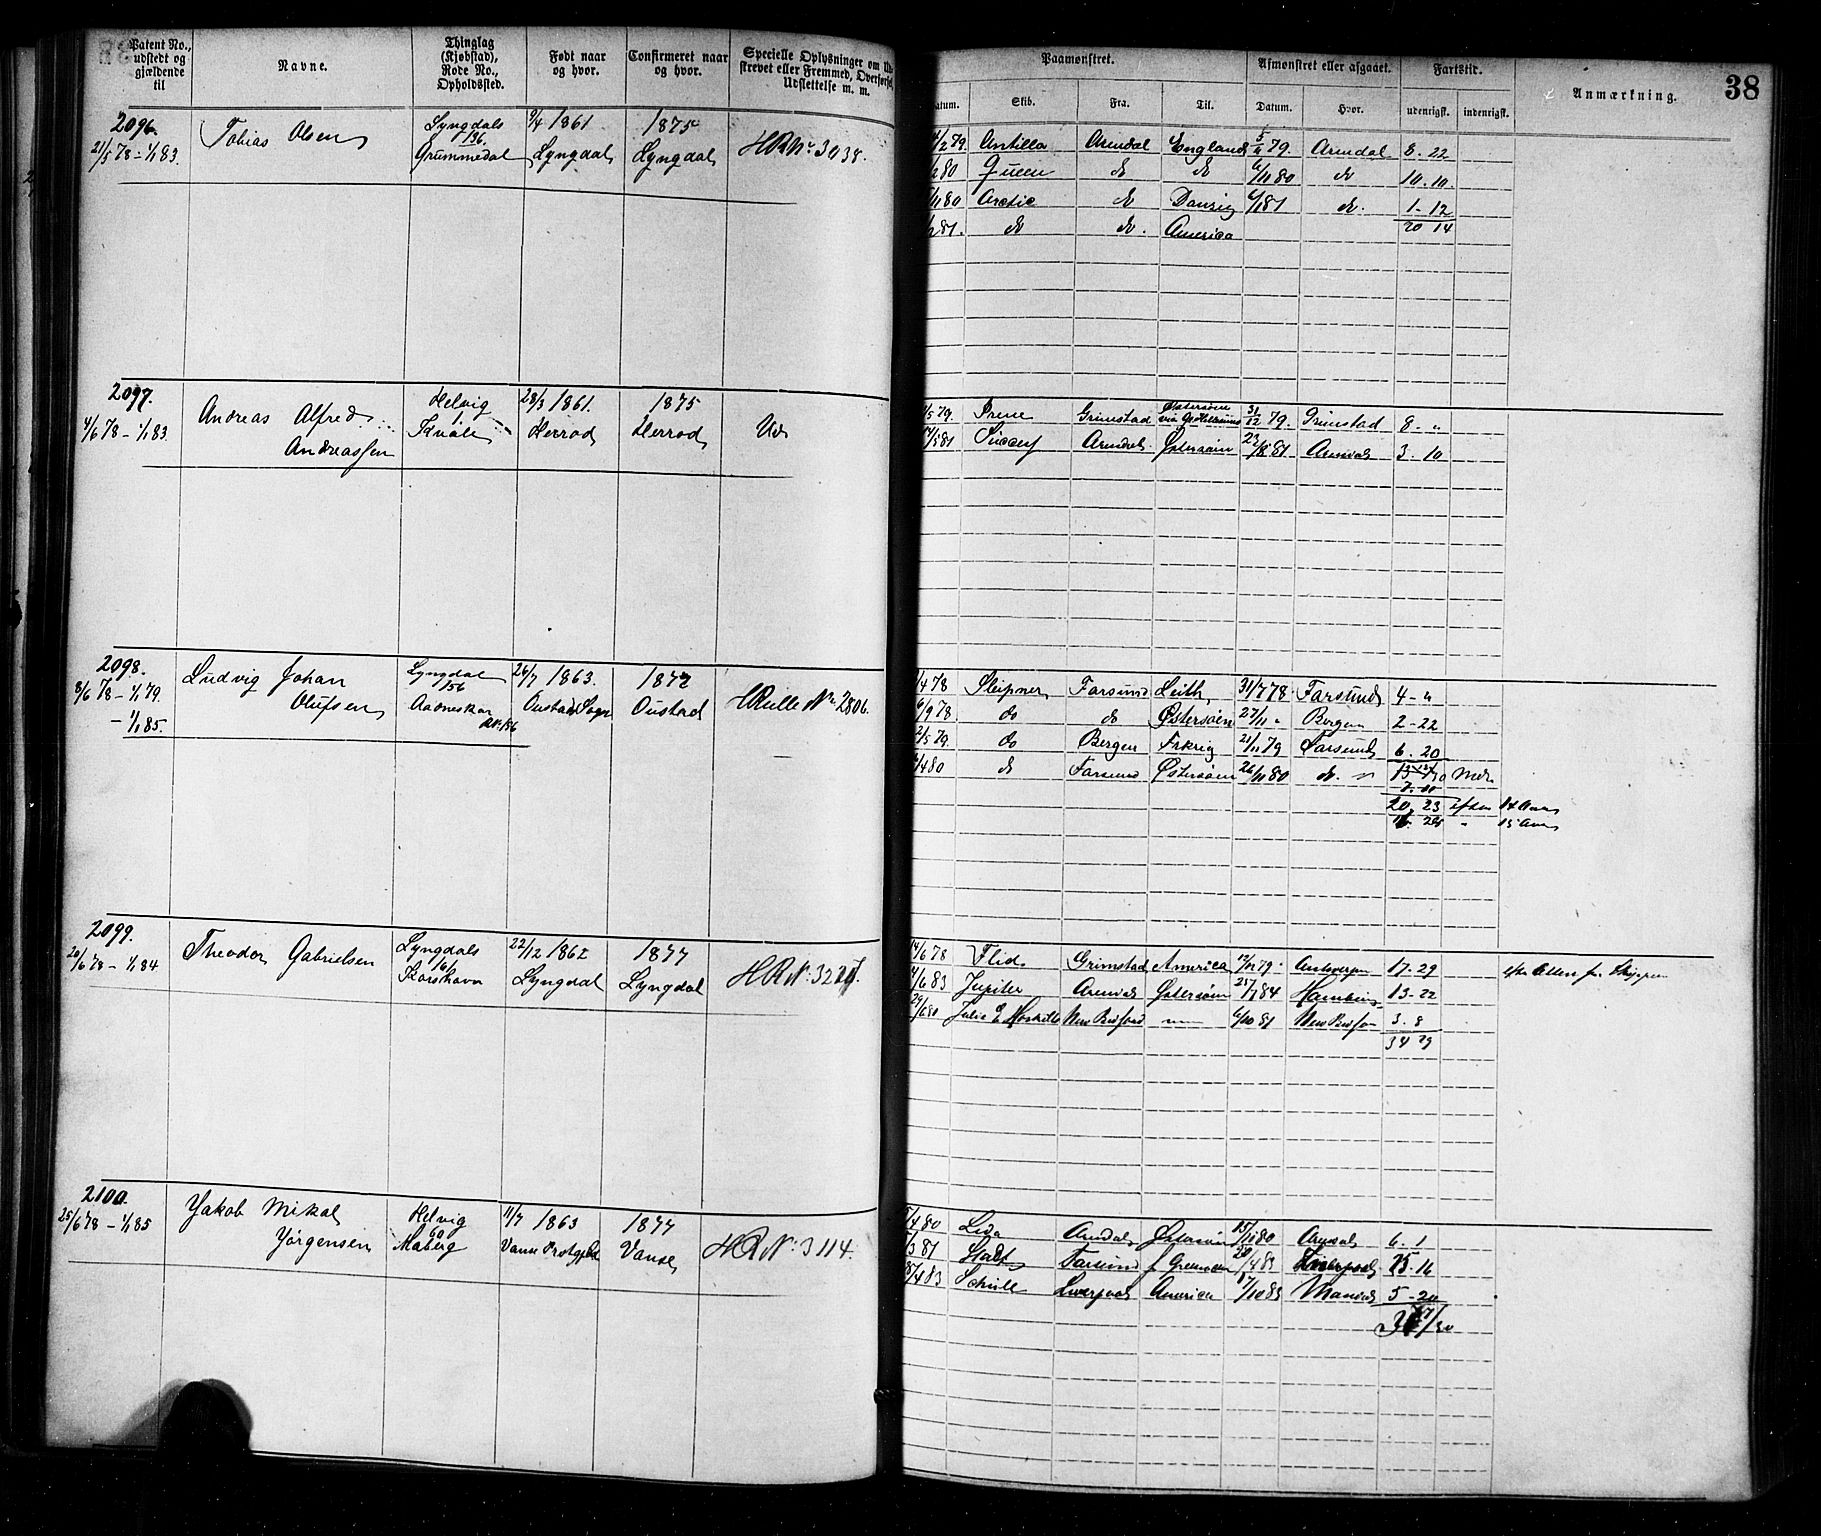 Patent No., udstedt og gjældende til
Navne.
Thinglag (Kjøbstad), Rode No., Opholdssted.
Født naar og hvor.
Confirmeret naar og hvor.
Specielle Oplysninger om Udskrevet eller Fremmed, Overførsel, Udslettelse m. m.
Paamønstret.
Afmønstret eller afgaaet.
Fartstid.
Anmærkning.
38
Datum.
Skib.
Fra.
Til.
Datum.
Hvor.
udenrigsk.
indenrigsk.
2096.
21/5 78 - 1/1 83.
Tobias Olsen
Lyngdals
136.
Grummedal
9/4 1861
Lyngdal
1875
Lyngdal
/2 79. Antilla Arendal England 79. Arendal 8. 22
80 Queen do do 6/11 80 do 10. 10.
/11 80 Arctic do Danzig 6/1 81 do. 1 - 12
20 14
/2 81. do do. America
2097.
4/6 78 - 1/1 83.
Andreas Alfred
Andreassen
Helvig
1
28/3 1861.
Herrod
1875
Herrod
Ud
/5 79. Irene Grimstad Østersøen via 31/12 79. Grimstad 8 - "
/5 81 Arendal Østersøen 23/8 81 Arendal 3. 10
2098.
8/6 78 - 1/1 79.
- 1/1 85.
Ludvig Johan
Olufsen
Lyngdal
156
Aadneskar
26/7 1863.
Oustad Sogn
1872
Oustad
HRulle No. 2806.
/4 78 Sleipner Farsund Leith, 31/7 78 Farsund 4 - "
6/9 78 do do Østersøen 27/11 " Bergen 2 - 22
2/5 79. do Bergen 21/11 79 Farsund 6. 20
/4 80 do Farsund Østersøen 26/11 80 do. "
20. 23 efter 14 Aar
" 15 Aar
2099.
20/6 78 - 1/1 84
Theodor Gabrielsen
Lyngdals
161
Korshavn
22/12 1862
Lyngdal
1877
Lyngdal
14/6 78 Flid Grimstad America 79. Antwerpen 17 - 29
4/6 83 Jupiter Arendal Østersøen 84 Hamburg 13 - 22
29/6 80 Julie E New Bedford 6/10 81 New Bedfor 3. 8
34 29
2100.
25/6 78 - 1/1 85
Yakob Mikal
Yörgensen
Helvig
60
Maberg
11/7 1863
Vanse
1877
Vanse
HR No. 3114.
/4 80 Lida Arendal Østersøen 15/11 80 Arendal 6. 1
/3 81 Stadt Farsund 83 Liverpool 25. 16
/4 83 Liverpool America 7/10 83 Mandal 5 - 20